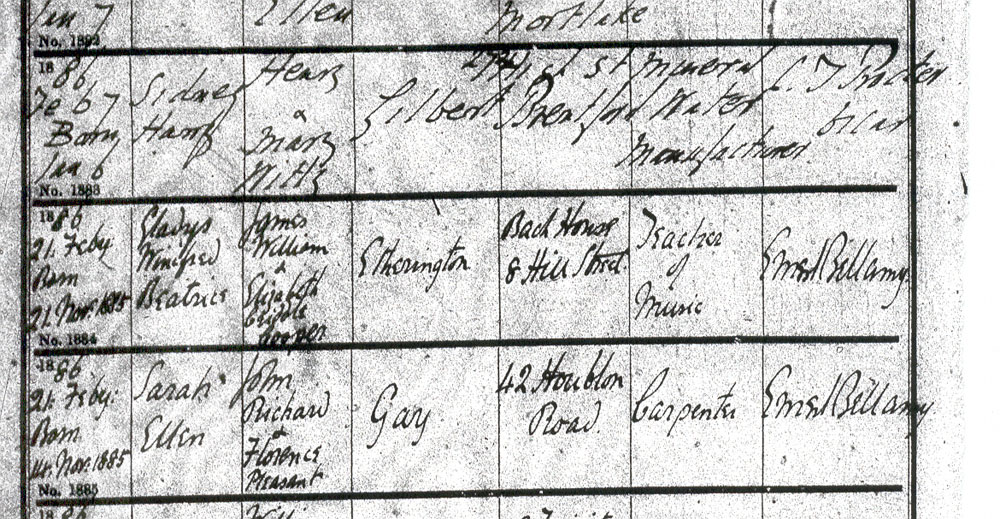 Jan 7 Ellen Mortlake
No. 1882
1886
Feb 7
Born
Jan 6
Sidney
Harry
Henry
&
Mary
Gilbert
High St
Brentford
Mineral
Water
Manufacturer
Vicar
No. 1883
1886
21. Feby
Born
21. Nov. 1885
Gladys
Winifred
Beatrice
James
William
&
Elizabeth
Hooper
Etherington
Back House
8 Hill Street
Teacher
of
Music
Ernest Bellamy.
No. 1884
1886
21. Feby:
Born
14. Nov. 1885
Sarah
Ellen
John
Richard
&
Florence
Pleasant
Gay
42 Houblon
Road
Carpenter
Ernest Bellamy
No. 1885
1886